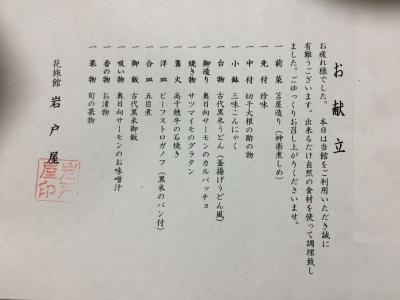 お献立
お疲れ様でした。本日は当館をご利用いただき誠に
有難うございます。出来るだけ自然の食材を使って調理致し
ました。ごゆっくりお召し上がりくださいませ。
一 前菜 苫屋造り(神楽煮しめ)
一 先付 珍味
一 中付 切干大根の酢の物
一 小鉢 三味こんにゃく
一 台物 古代黒米うどん(釜揚げうどん風)
一 御造り 奥日向サーモンのカルパッチョ
一 焼き物 サツマイモのグラタン
一 篝火 高千穂牛の石焼き
一 洋皿 ビーフストロガノフ(黒米のパン付)
一 合皿 五目煮
一 御飯 古代黒米御飯
一 吸い物 奥日向サーモンのお味噌汁
一 香の物 お漬物
一 果物 旬の果物
花旅館 岩戸屋
岩戸
屋印